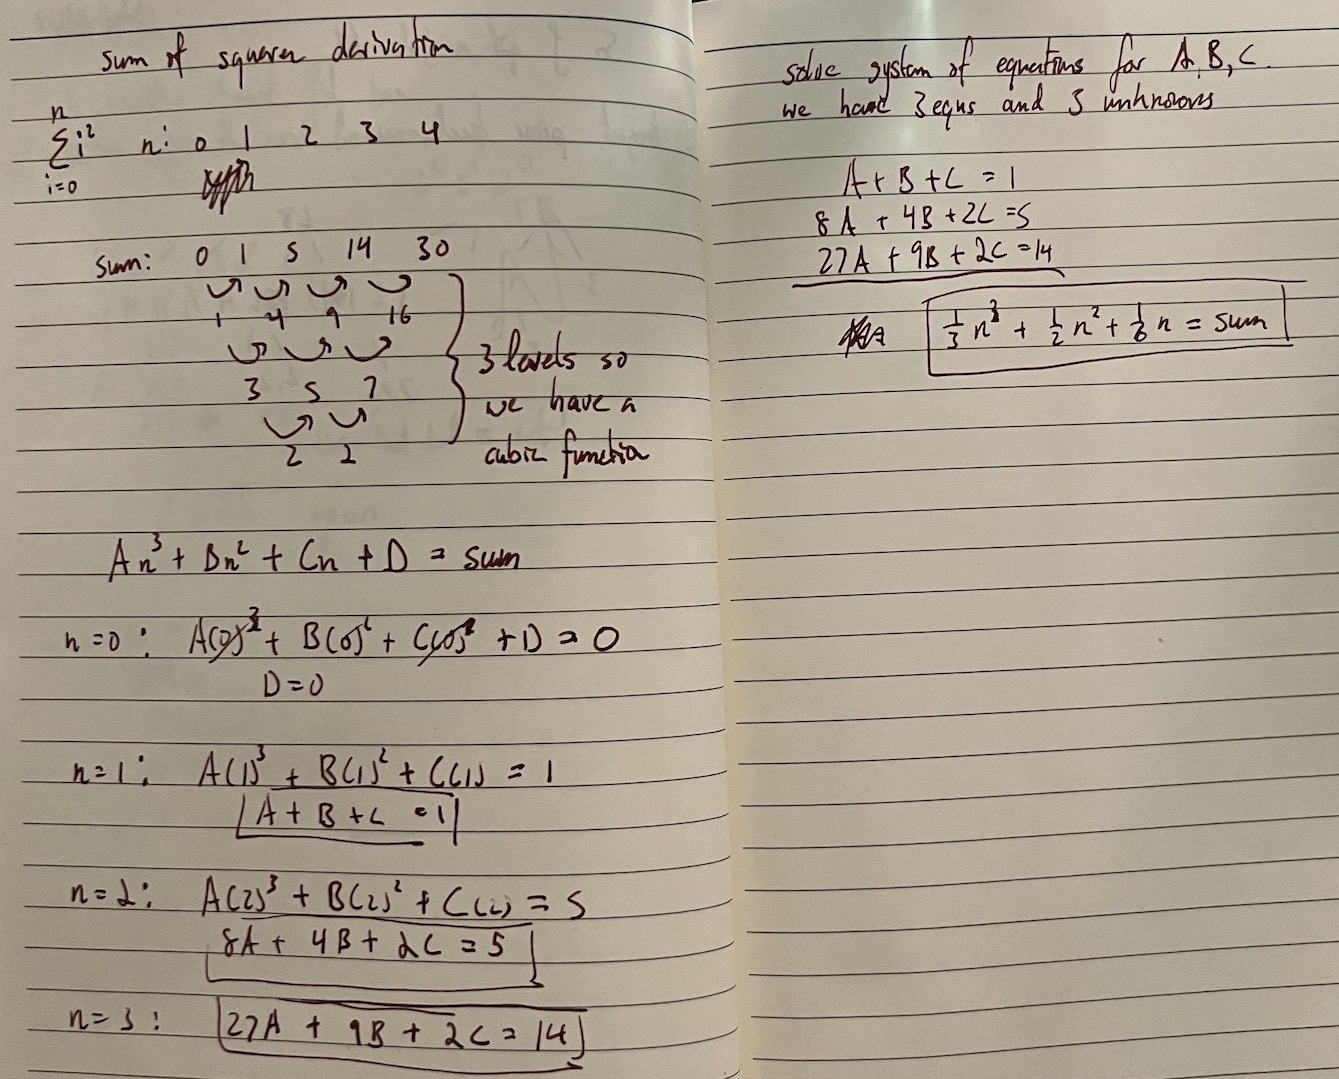 sum of squares derivation
n
∑ i²   n: 0 1 2 3 4
i=0
sum: 0 1 5 14 30
1 4 9 16
3 5 7
2 2
3 levels so
we have a
cubic function
An³ + Bn² + Cn + D = sum
n=0: A(0)³ + B(0)² + C(0) + D = 0
D=0
n=1: A(1)³ + B(1)² + C(1) = 1
A + B + C = 1
n=2: A(2)³ + B(2)² + C(2) = 5
8A + 4B + 2C = 5
n=3: 27A + 9B + 2C = 14
solve system of equations for A, B, C.
we have 3 eqns and 3 unknowns
A + B + C = 1
8A + 4B + 2C = 5
27A + 9B + 2C = 14
1/3 n³ + 1/2 n² + 1/6 n = sum